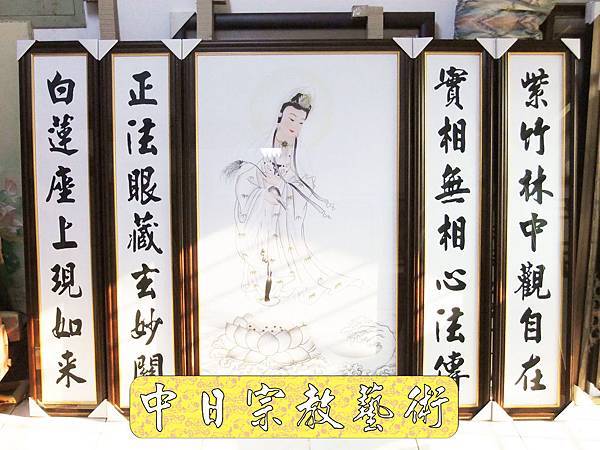 紫竹林中觀自在
實相無相心法傳
正法眼藏玄妙關
白蓮座上現如来
中日宗教藝術